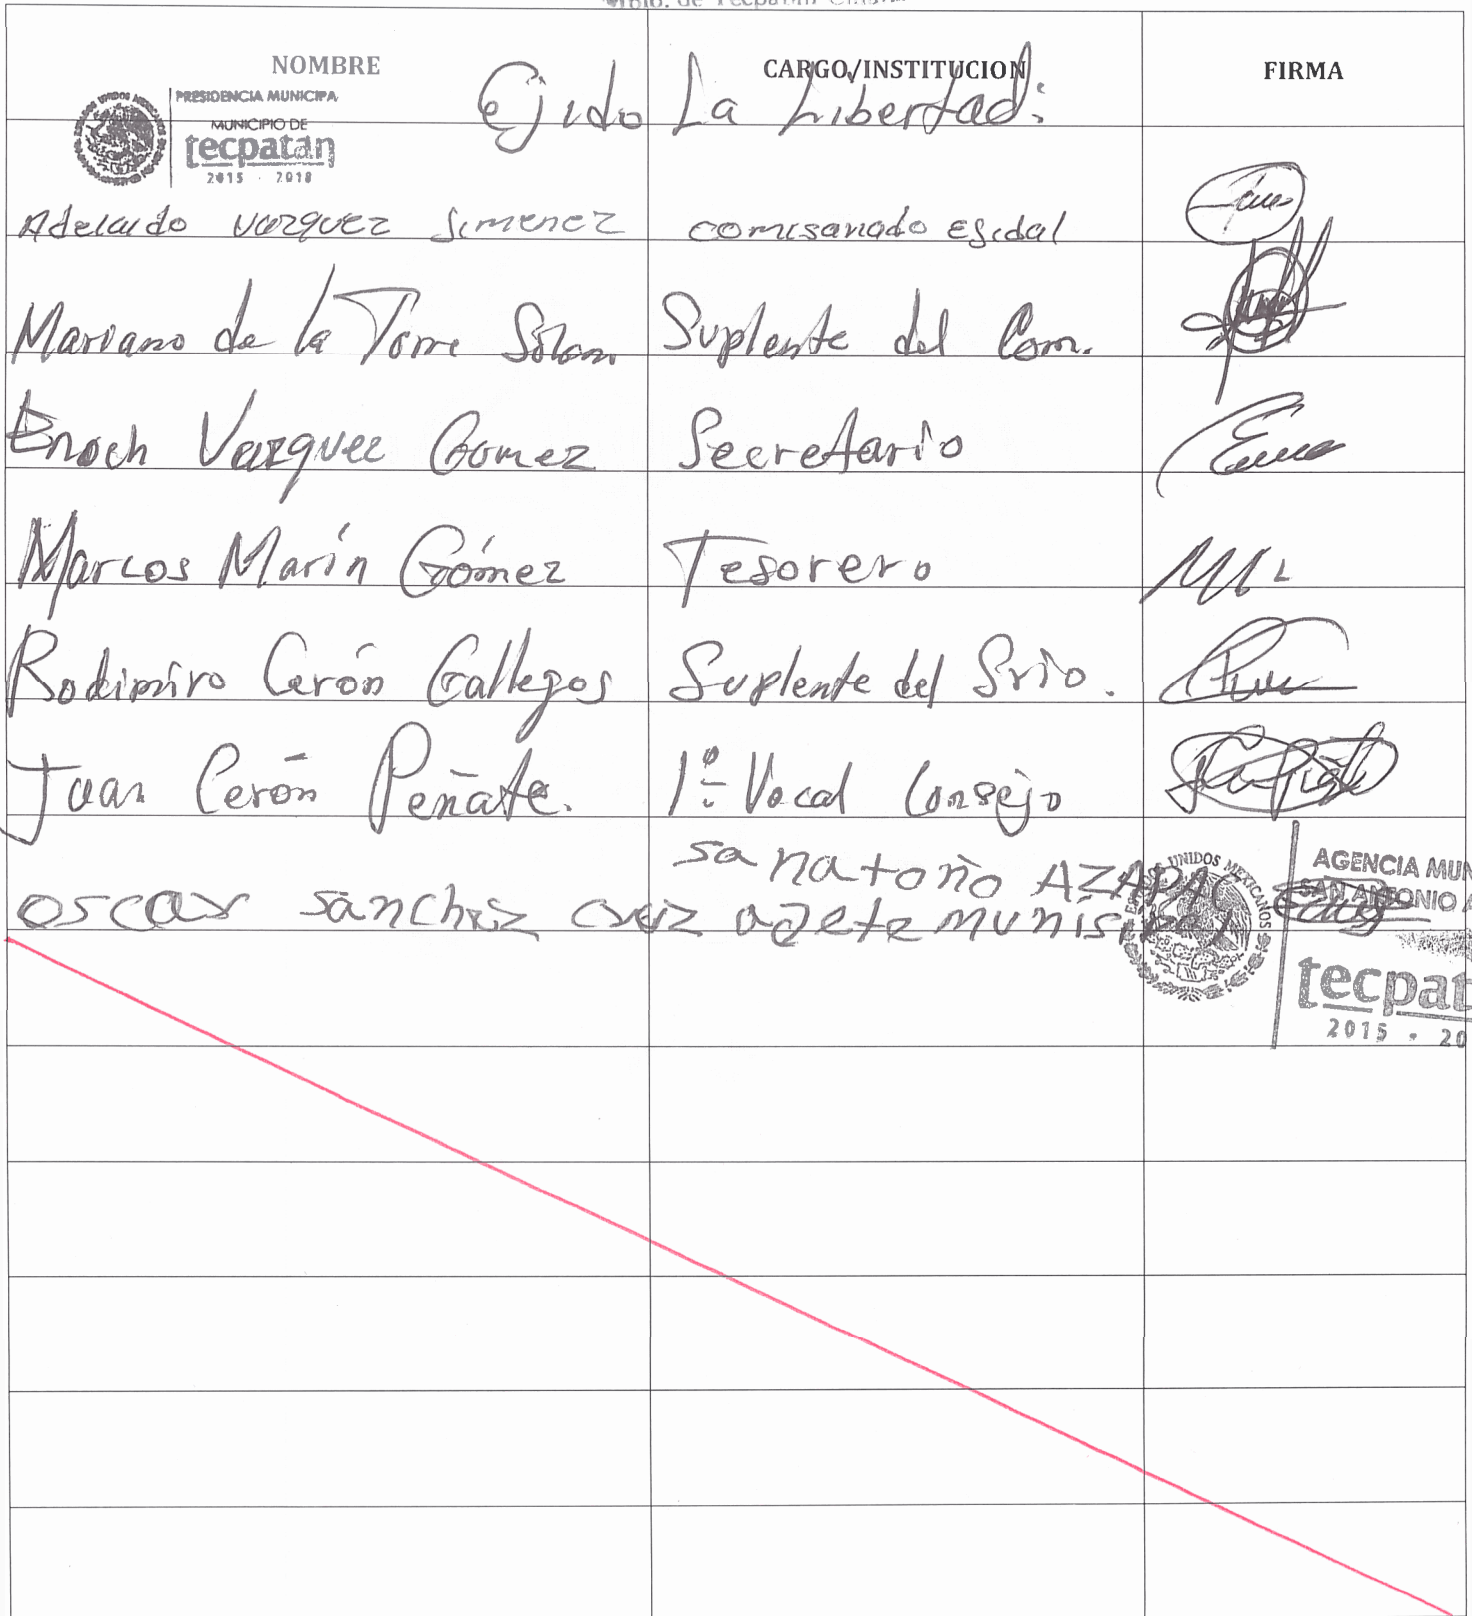 Mpio. de Tecpatán
NOMBRE CARGO/INSTITUCION FIRMA
Ejido La Libertad:
PRESIDENCIA MUNICIPA
MUNICIPIO DE
tecpatán
2015 - 2018
Adelaido vazquez Jimenez comisariado Egidal
Mariano de la Torre Sólon Suplente del Com.
Enoch Vazquez Gomez Secretario
Marcos Marín Gómez Tesorero
Rodimiro Cerón Gallegos Suplente del Srio.
Juan Cerón Peñate. 1º. Vocal Consejo
sanatoño AZAPAC
oscar sanchiz cruz agete munisipal
ESTADOS UNIDOS MEXICANOS
AGENCIA MUN
SAN ANTONIO A
tecpat
2015 - 20